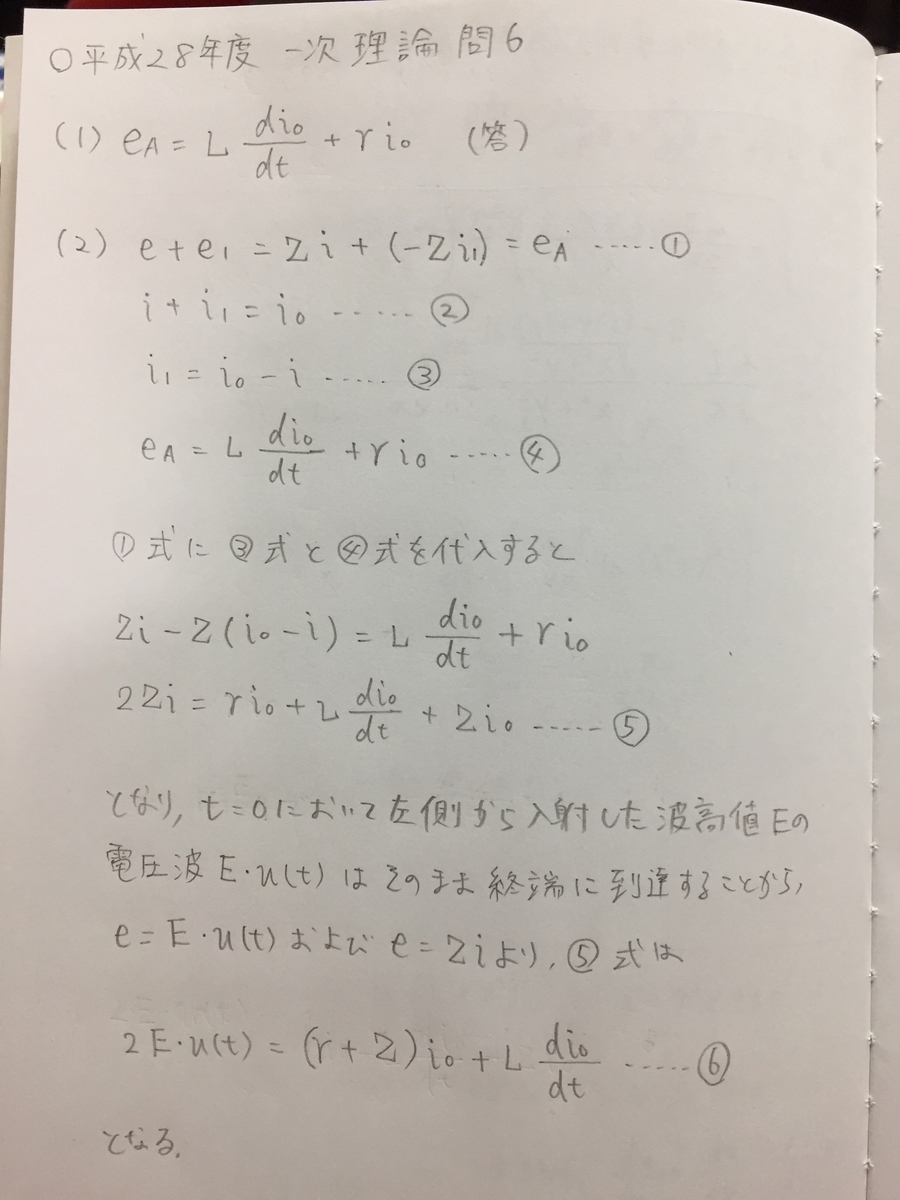 ○平成28年度 一次 理論 問6
(1) eA = L di0/dt + r i0 (答)
(2) e + e1 = Zi + (-Zi1) = eA ……①
i + i1 = i0 ……②
i1 = i0 - i ……③
eA = L di0/dt + r i0 ……④
①式に③式と④式を代入すると
Zi - Z(i0 - i) = L di0/dt + r i0
2Zi = r i0 + L di0/dt + Z i0 ……⑤
となり, t=0において左側から入射した波高値Eの
電圧波E・u(t)はそのまま終端に到達することから,
e = E・u(t)および e = Ziより, ⑤式は
2E・u(t) = (r + Z) i0 + L di0/dt ……⑥
となる.